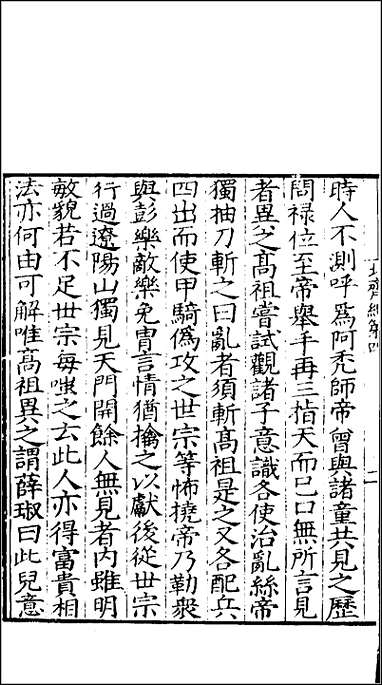 時人不測呼爲阿禿師帝曾與諸童共見之歷
問禄位至帝舉手再三指天而已口無所言見
者異之高祖嘗試觀諸子意識各使治亂絲帝
獨抽刀斬之曰亂者須斬高祖是之又各配兵
四出而使甲騎僞攻之世宗等怖撓帝乃勒衆
與彭樂敵樂免冑言情猶擒之以獻後從世宗
行過遼陽山獨見天門開餘人無見者內雖明
敏貌若不足世宗每嗤之云此人亦得富貴相
法亦何由可解唯高祖異之謂薛琡曰此兒意
北齊紀第四
二